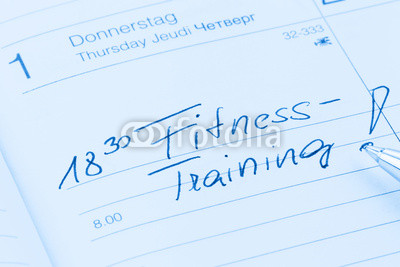 Donnerstag
Thursday Jeudi Четверг
32-333
1
18³⁰ Fitness-
Training
8.00
fotolia